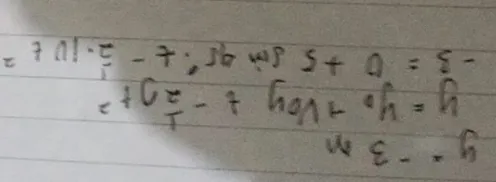 y = -3 m
y = y₀ + v₀y t - 1/2 g t²
-3 = 0 + 5 sin 45°. t - 1/2 . 10 t²